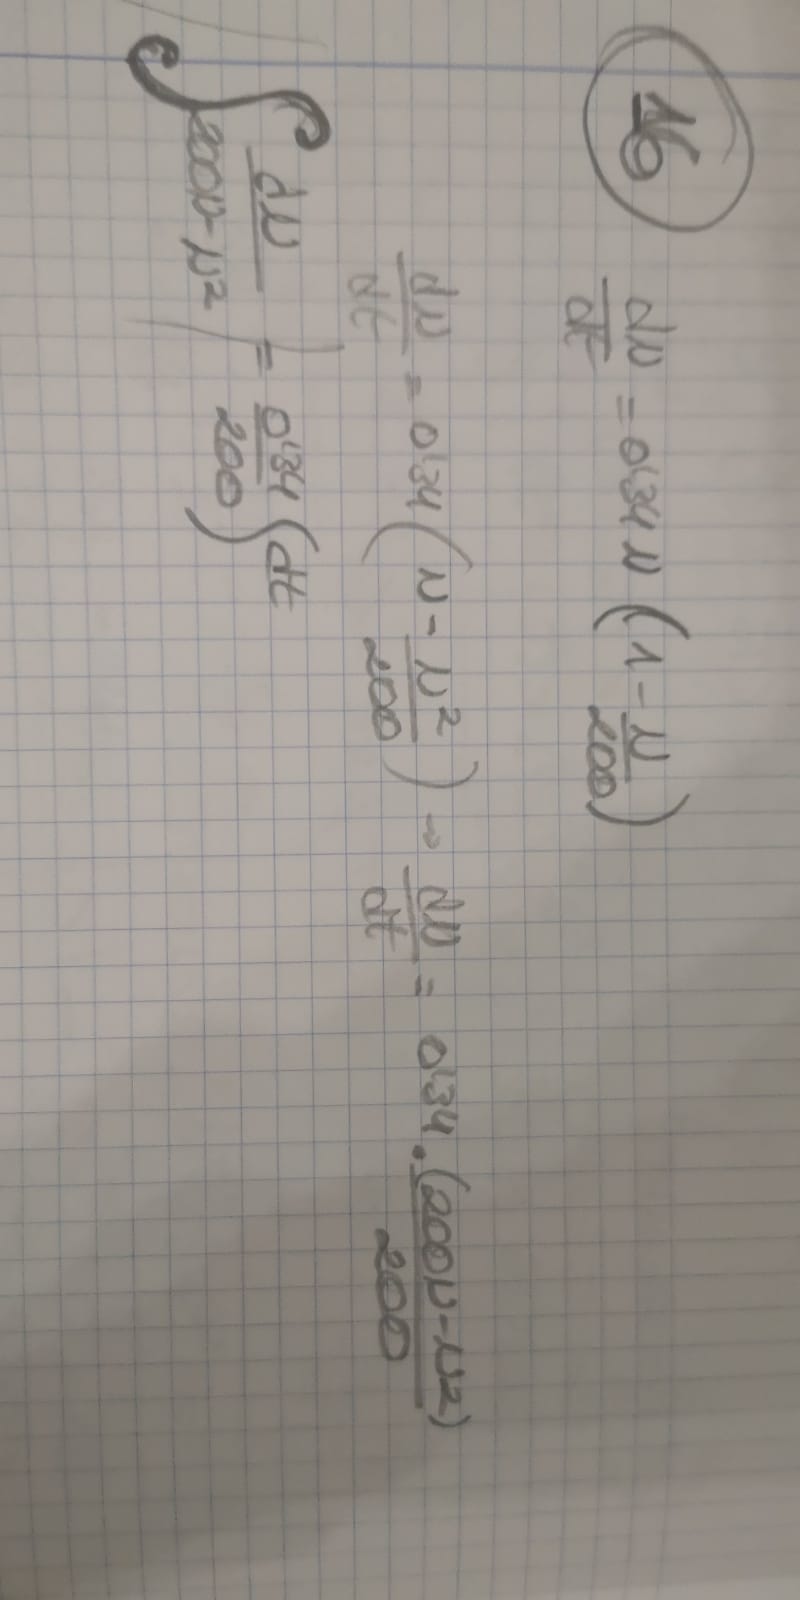 16 dN/dt = 0'34 N (1 - N/200)
dN/dt = 0'34 (N - N²/200) → dN/dt = 0'34 · (200N - N²)/200
∫ dN/(200N - N²) = 0'34/200 ∫ dt